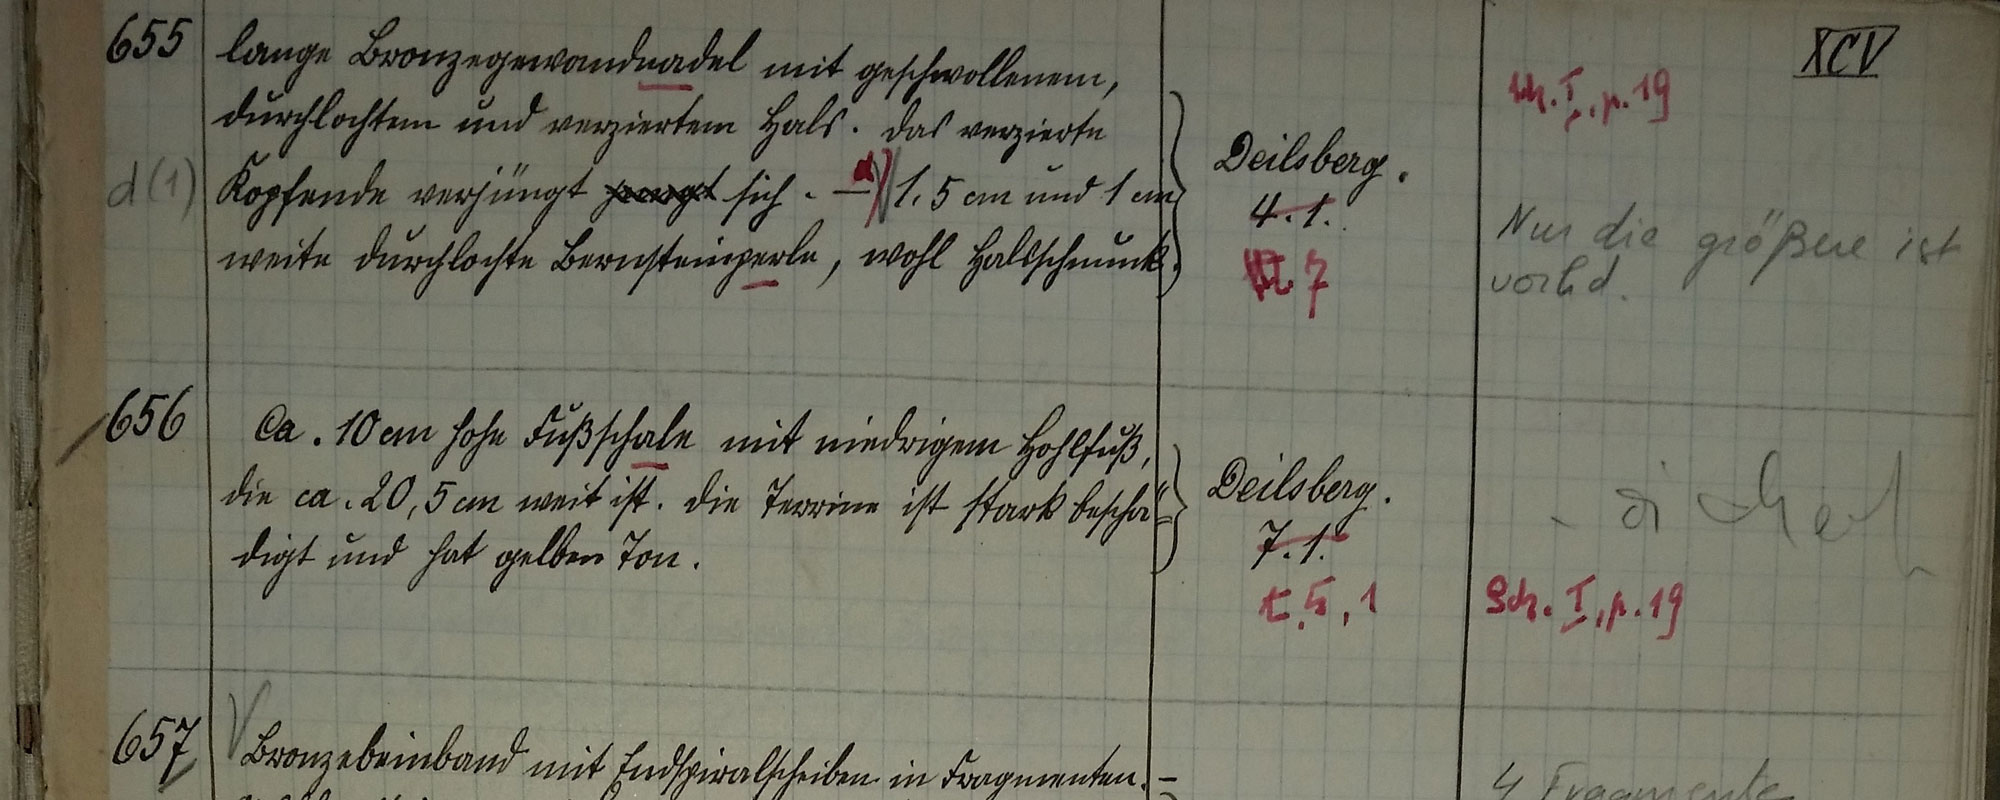 XCV
655 lange Bronzegewandnadel mit geschwollenem,
durchlochtem und verziertem Hals. Das verzierte
d(1) Kopfende verjüngt sich. – d) 1.5 cm und 1 cm
weite durchlochte Bernsteinperle, wohl Halsschmuck.
Deilsberg.
4.1.
VI 7
Sch. I, p. 19
Nur die größere ist
vorhd.
656 Ca. 10 cm hohe Fußschale mit niedrigem Hohlfuß,
die ca. 20,5 cm weit ist. Die Terrine ist stark beschä=
digt und hat gelben Ton.
Deilsberg.
7.1.
t. 5, 1
Sch. I, p. 19
657 Bronzebeinband mit Endspiralscheiben in Fragmenten. –
4 Fragmente